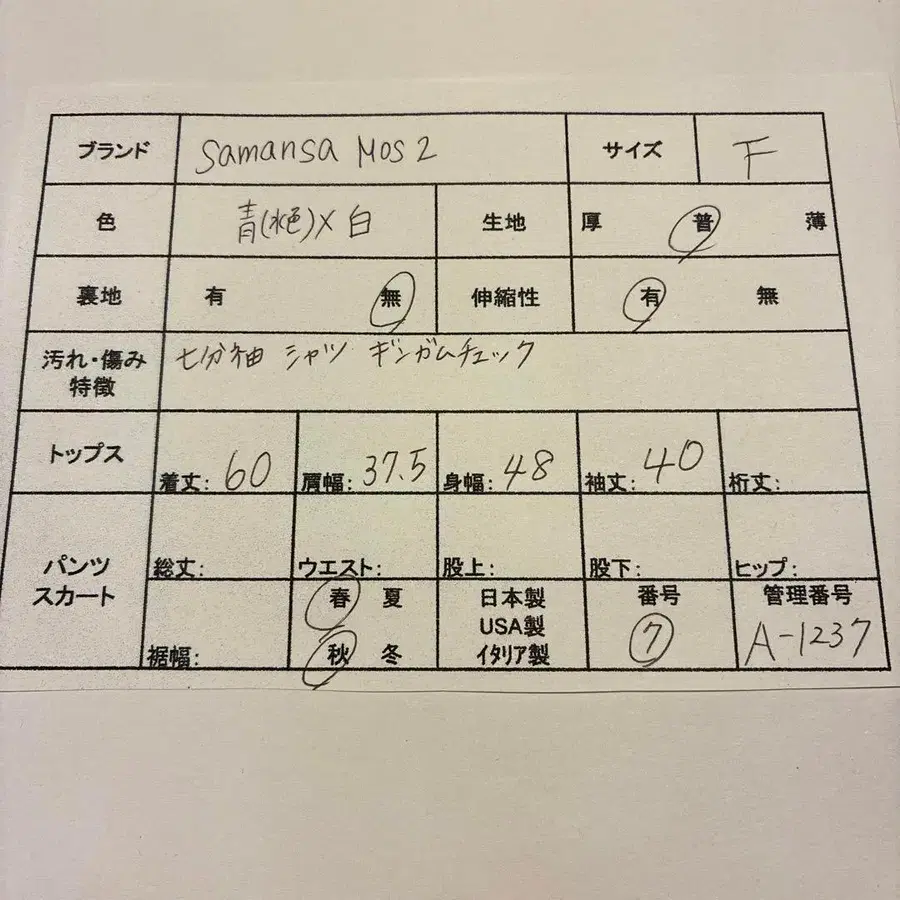 ブランド samansa Mos2 サイズ F
色 青(水色)×白 生地 厚 普 薄
裏地 有 無 伸縮性 有 無
汚れ・傷み 七分袖 シャツ ギンガムチェック
特徴
トップス 着丈: 60 肩幅: 37.5 身幅: 48 袖丈: 40 裄丈:
パンツ 総丈: ウエスト: 股上: 股下: ヒップ:
スカート 春 夏 日本製 番号 管理番号
USA製 7 A-1237
裾幅: 秋 冬 イタリア製